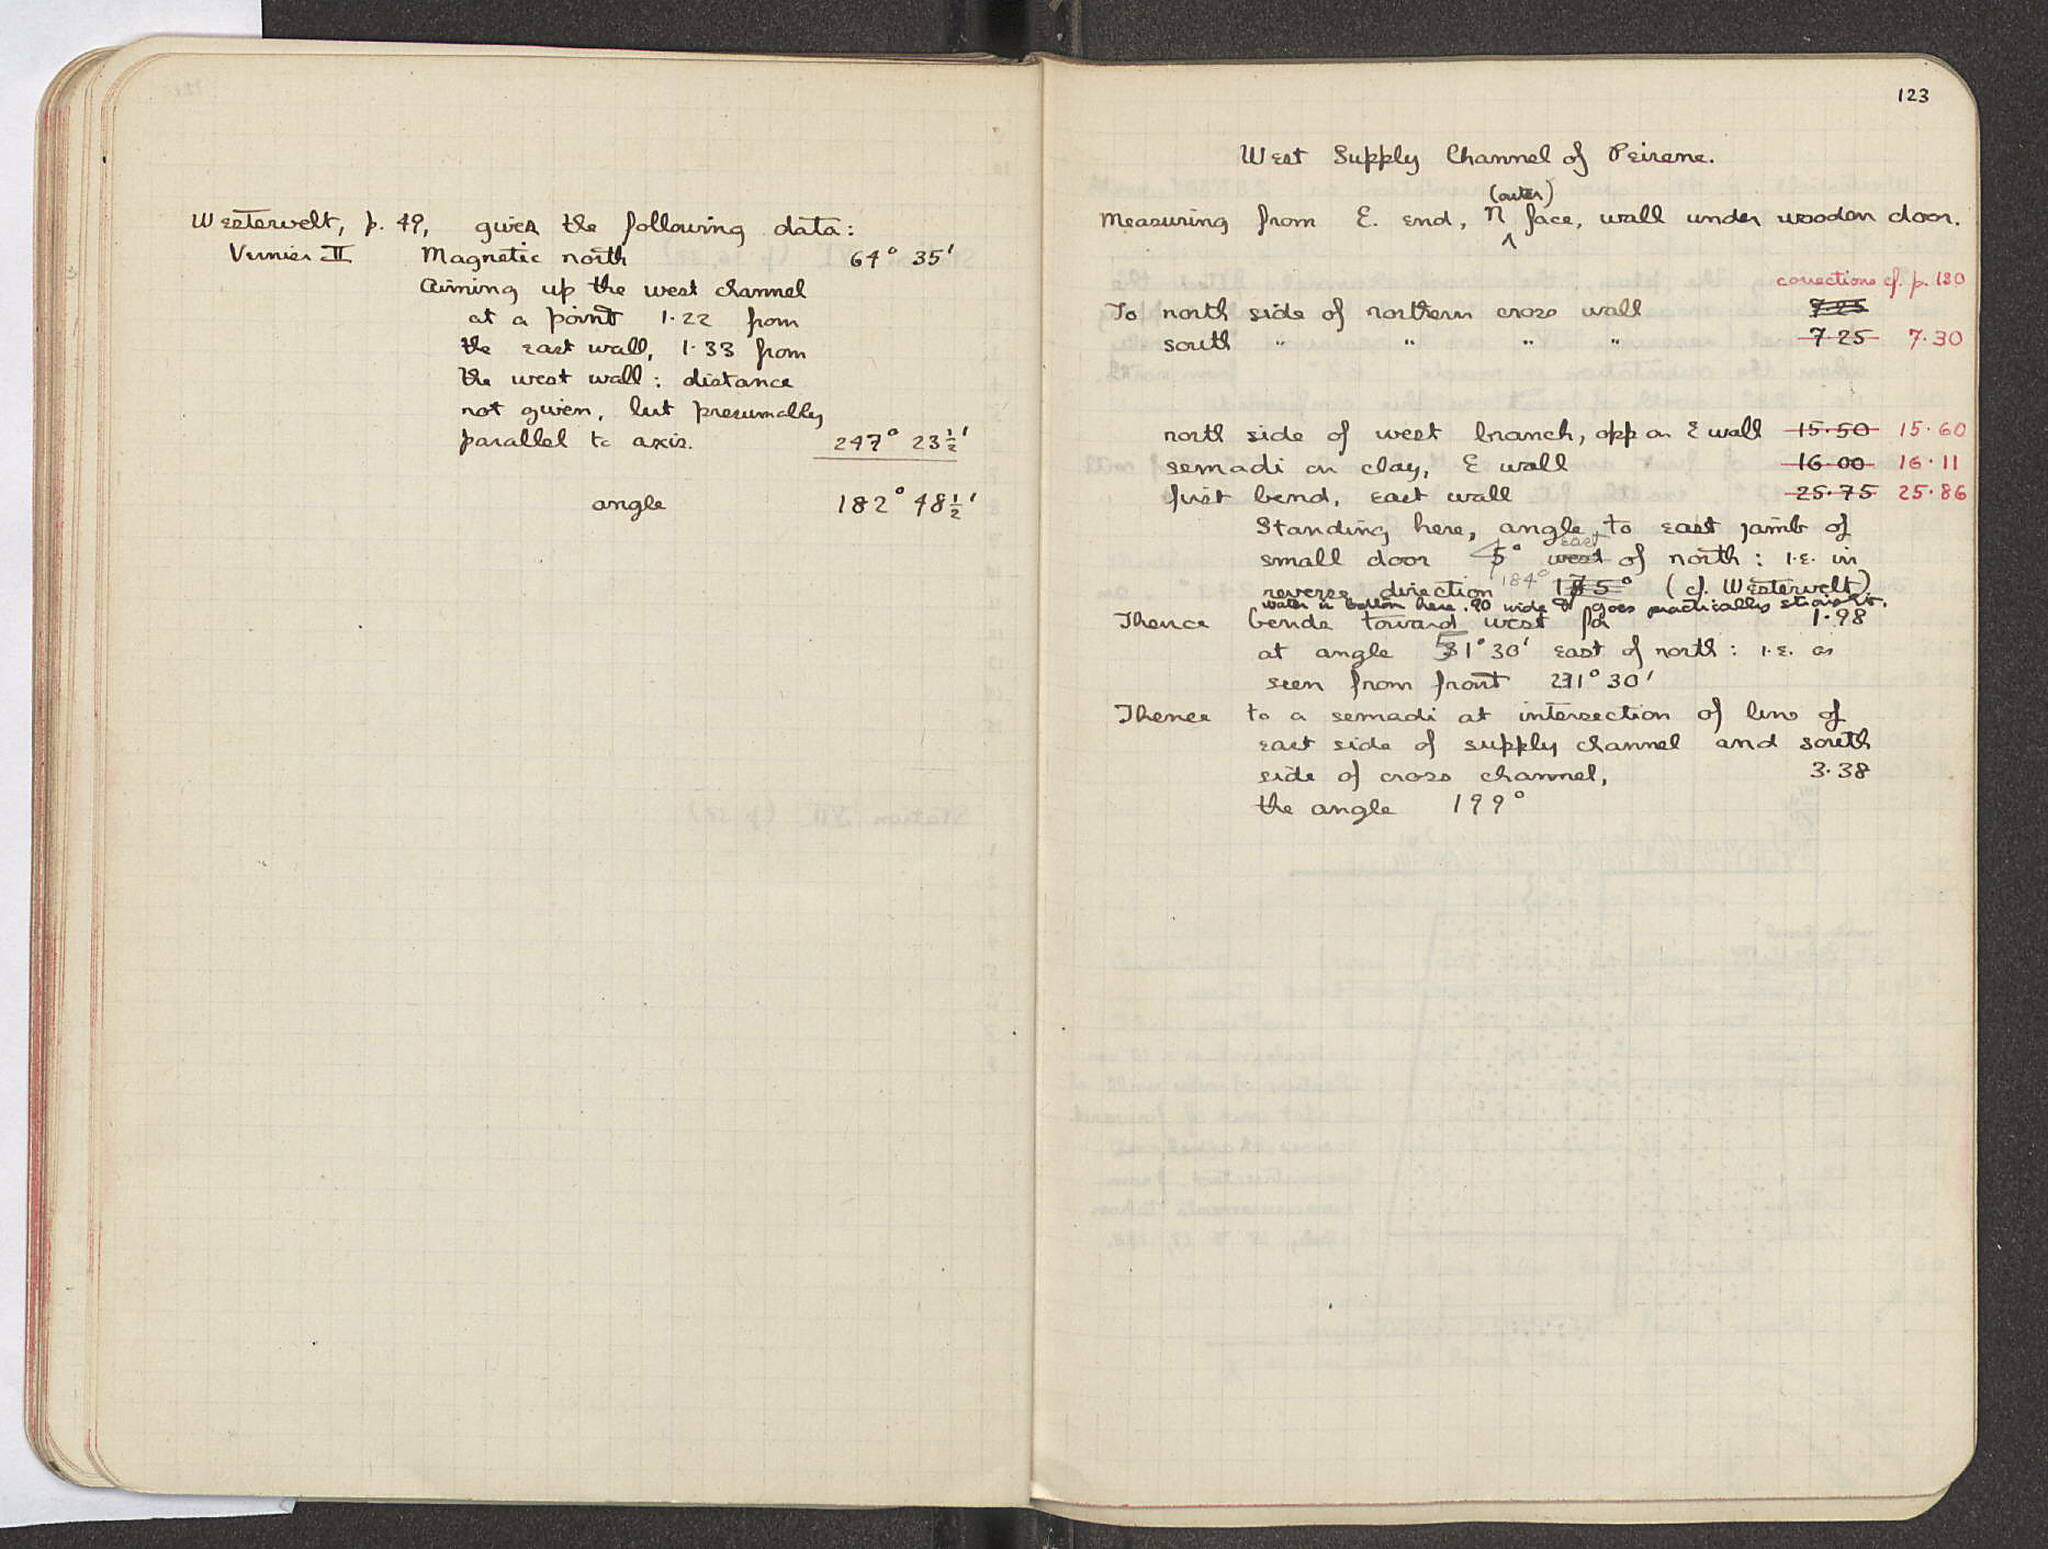 Westervelt, p. 49, gives the following data:
Vernier II Magnetic north 64° 35'
Aiming up the west channel
at a point 1.22 from
the east wall, 1.33 from
the west wall: distance
not given, but presumably
parallel to axis. 247° 23½'
angle 182° 48½'
123
West Supply Channel of Peirene.
(outer)
Measuring from E. end, N face, wall under wooden door.
corrections cf. p. 130
To north side of northern cross wall 7.25
south " " " " 7.25 7.30
north side of west branch, opp on E wall 15.50 15.60
semadi on clay, E wall 16.00 16.11
first bend, east wall 25.75 25.86
Standing here, angle to east jamb of
east
small door 4° west of north: i.e. in
reverse direction 184° 175° (cf. Westervelt).
water in bottom here .90 wide & goes practically straight.
Thence bends toward west for 1.98
at angle 51° 30' east of north: i.e. as
seen from front 231° 30'
Thence to a semadi at intersection of line of
east side of supply channel and south
side of cross channel, 3.38
the angle 199°